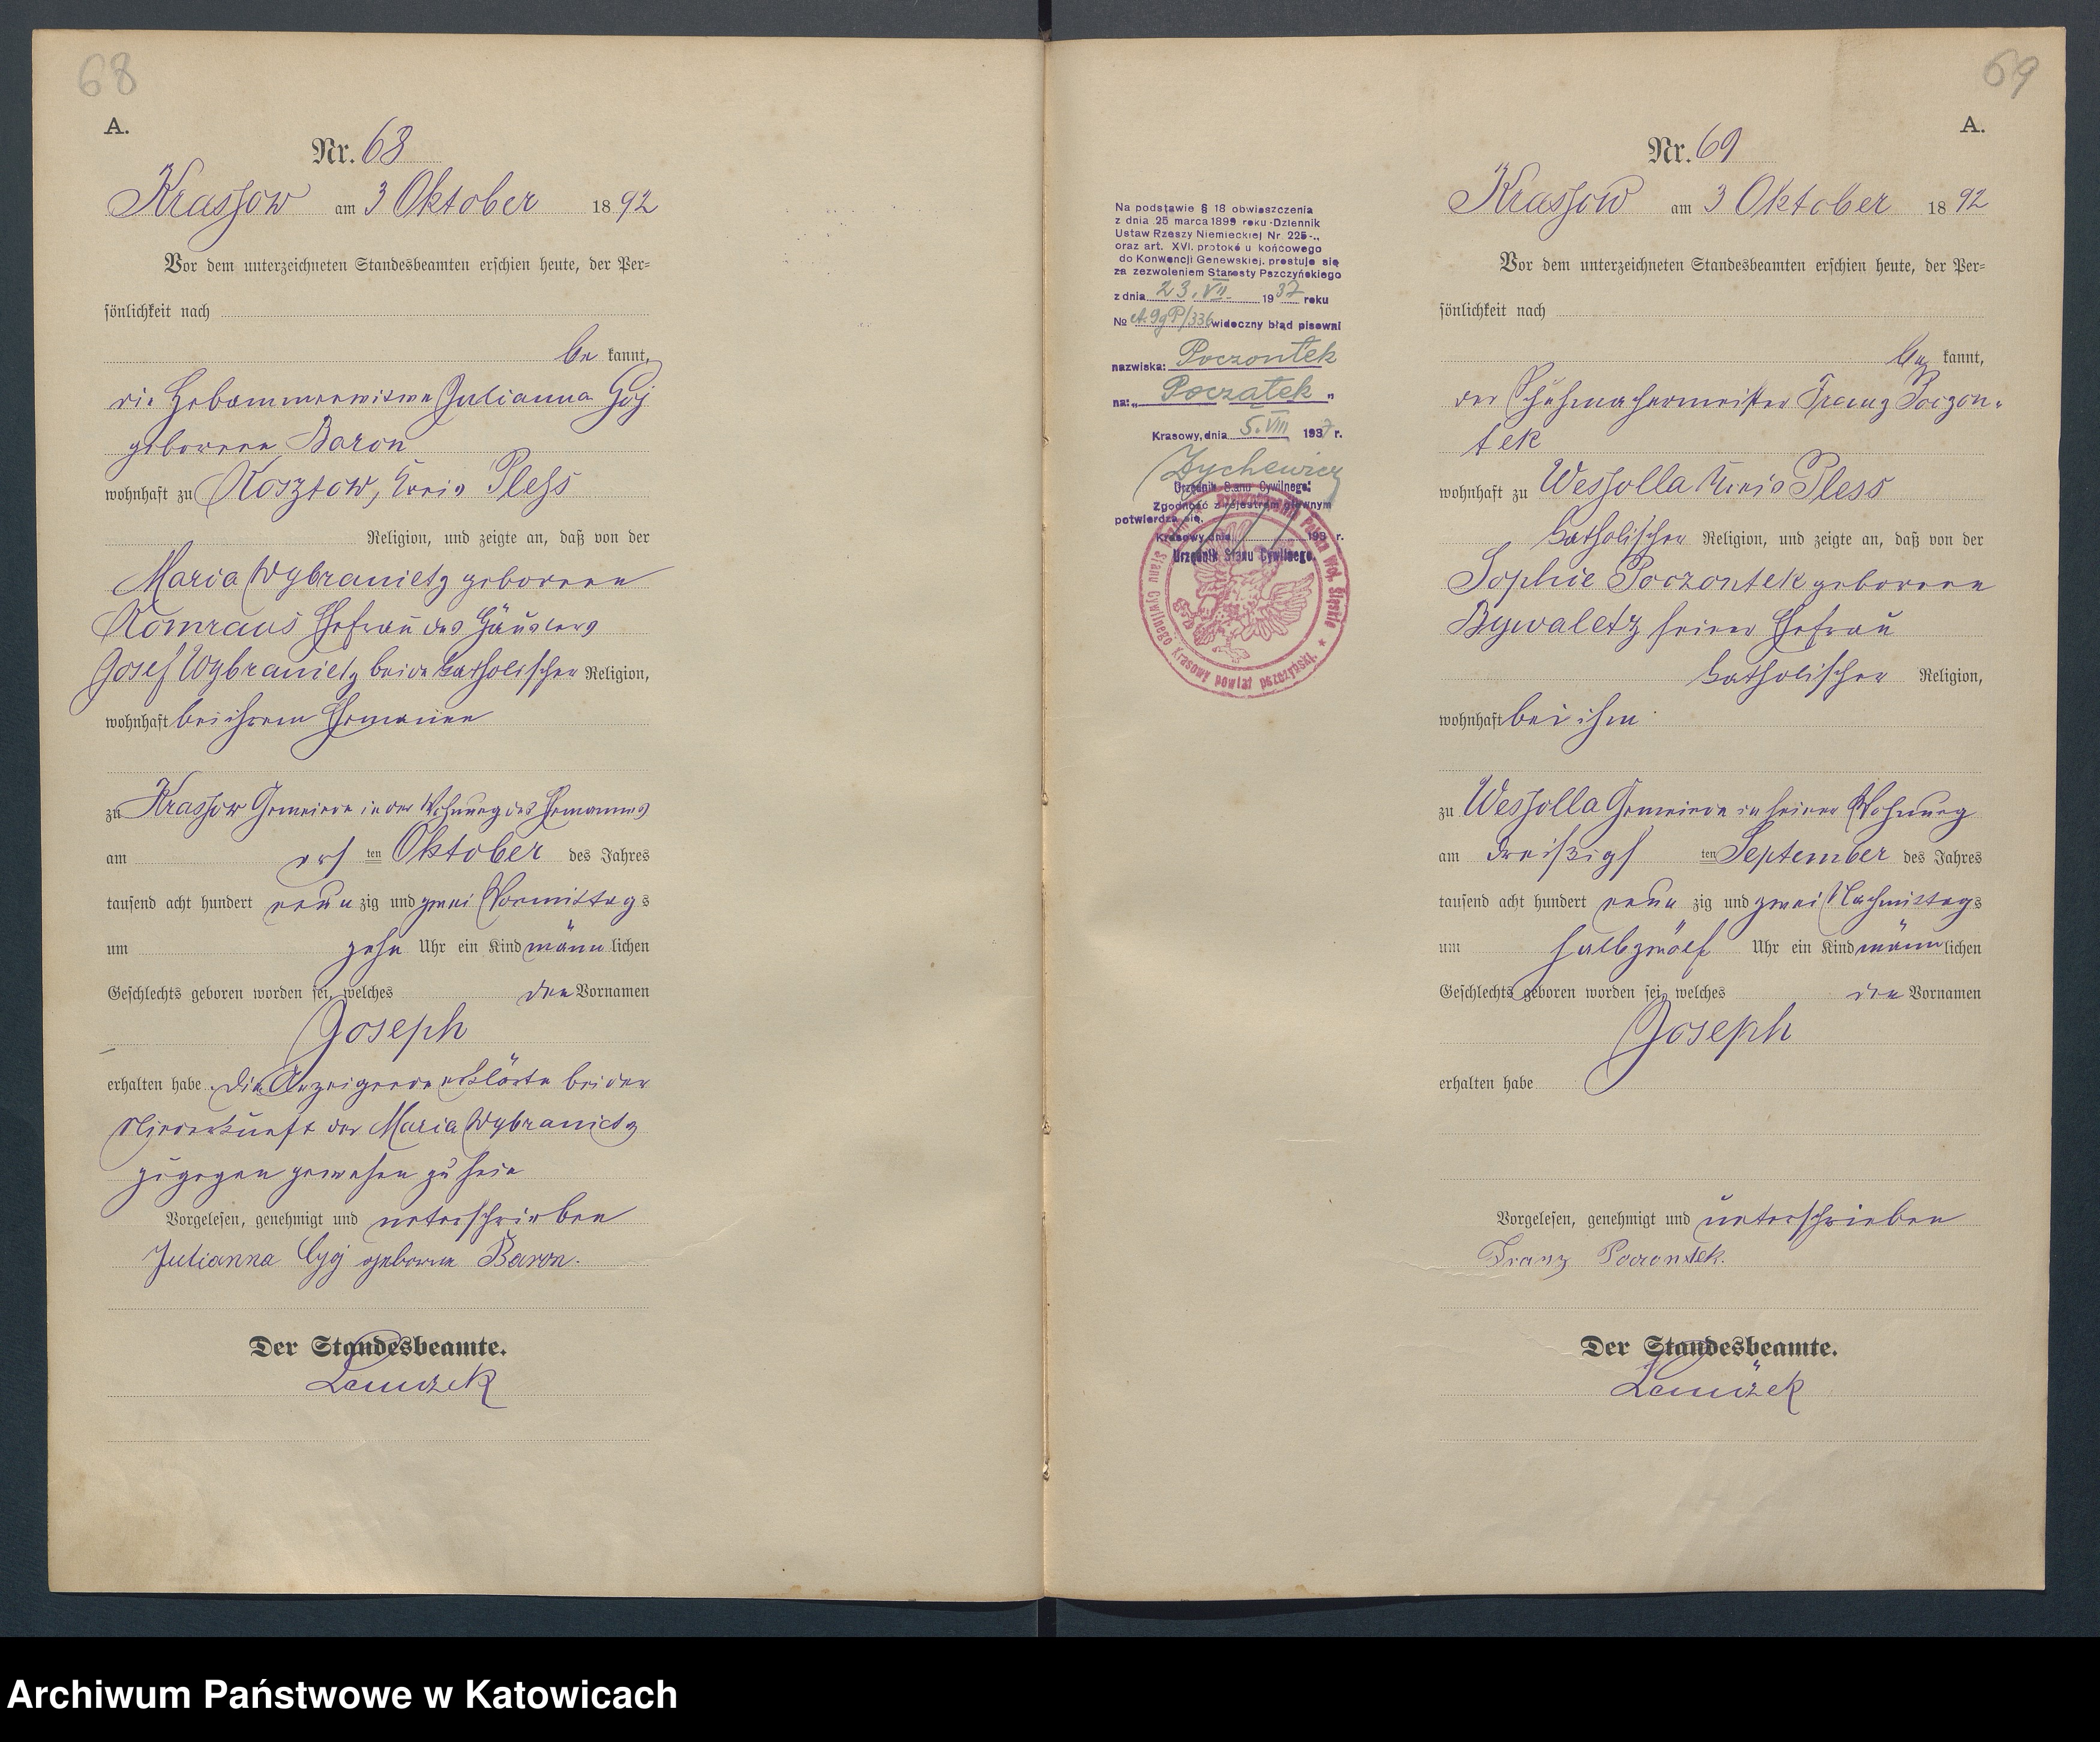 68
A.
Nr. 68
Krassow am 3 Oktober 1892
Vor dem unterzeichneten Standesbeamten erschien heute, der Per=
sönlichkeit nach
be kannt,
die Hebammenwitwe Julianna Goj
geborene Baron
wohnhaft zu Kosztow, Kreis Pless
Religion, und zeigte an, daß von der
Maria Wybranietz geborene
Komraus Ehefrau des Häuslers
Josef Wybranietz beide katholischer Religion,
wohnhaft bei ihrem Ehemanne
zu Krassow Gemeinde in der Wohnung des Ehemannes
am erst ten Oktober des Jahres
tausend acht hundert neun zig und zwei Vormittags
um zehn Uhr ein Kind männlichen
Geschlechts geboren worden sei, welches den Vornamen
Joseph
erhalten habe. Die Anzeigende erklärte bei der
Niederkunft der Maria Wybranietz
zugegen gewesen zu sein
Vorgelesen, genehmigt und unterschrieben
Julianna Goj geborene Baron.
Der Standesbeamte.
69
A.
Nr. 69
Krassow am 3 Oktober 1892
Vor dem unterzeichneten Standesbeamten erschien heute, der Per=
sönlichkeit nach
be kannt,
der Schuhmachermeister Franz Poczon-
tek
wohnhaft zu Wessolla Kreis Pless
katholischer Religion, und zeigte an, daß von der
Sophie Poczontek geborene
Bywaletz seiner Ehefrau
katholischer Religion,
wohnhaft bei ihm
zu Wessolla Gemeinde in seiner Wohnung
am dreißigst ten September des Jahres
tausend acht hundert neun zig und zwei Nachmittags
um halb zwölf Uhr ein Kind männlichen
Geschlechts geboren worden sei, welches den Vornamen
Joseph
erhalten habe
Vorgelesen, genehmigt und unterschrieben
Franz Poczontek.
Der Standesbeamte.
Na podstawie § 18 obwieszczenia
z dnia 25 marca 1899 roku-Dziennik
Ustaw Rzeszy Niemieckiej Nr. 225-„
oraz art. XVI. protokó u końcowego
do Konwencji Genewskiej, prostuje się
za zezwoleniem Starosty Pszczyńskiego
z dnia 23. VII. 1937 roku
№ widoczny błąd pisowni
nazwiska: Poczontek
na: „ Początek "
Krasowy, dnia 5. VIII 1937 r.
Żychewicz
Urzędnik Stanu Cywilnego:
Zgodność z rejestrem głównym
potwierdza się.
Krasowy dnia 193 r.
Urzędnik Stanu Cywilnego.
Stanu Cywilnego Krasowy powiat pszczyński. ★
Archiwum Państwowe w Katowicach